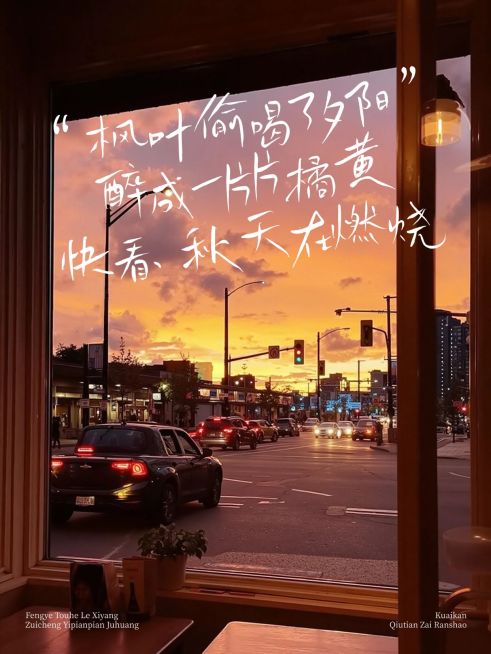 “枫叶偷喝了夕阳”
醉成一片片橘黄
快看、秋天在燃烧
Fengye Touhe Le Xiyang
Zuicheng Yipianpian Juhuang
Kuaikan
Qiutian Zai Ranshao